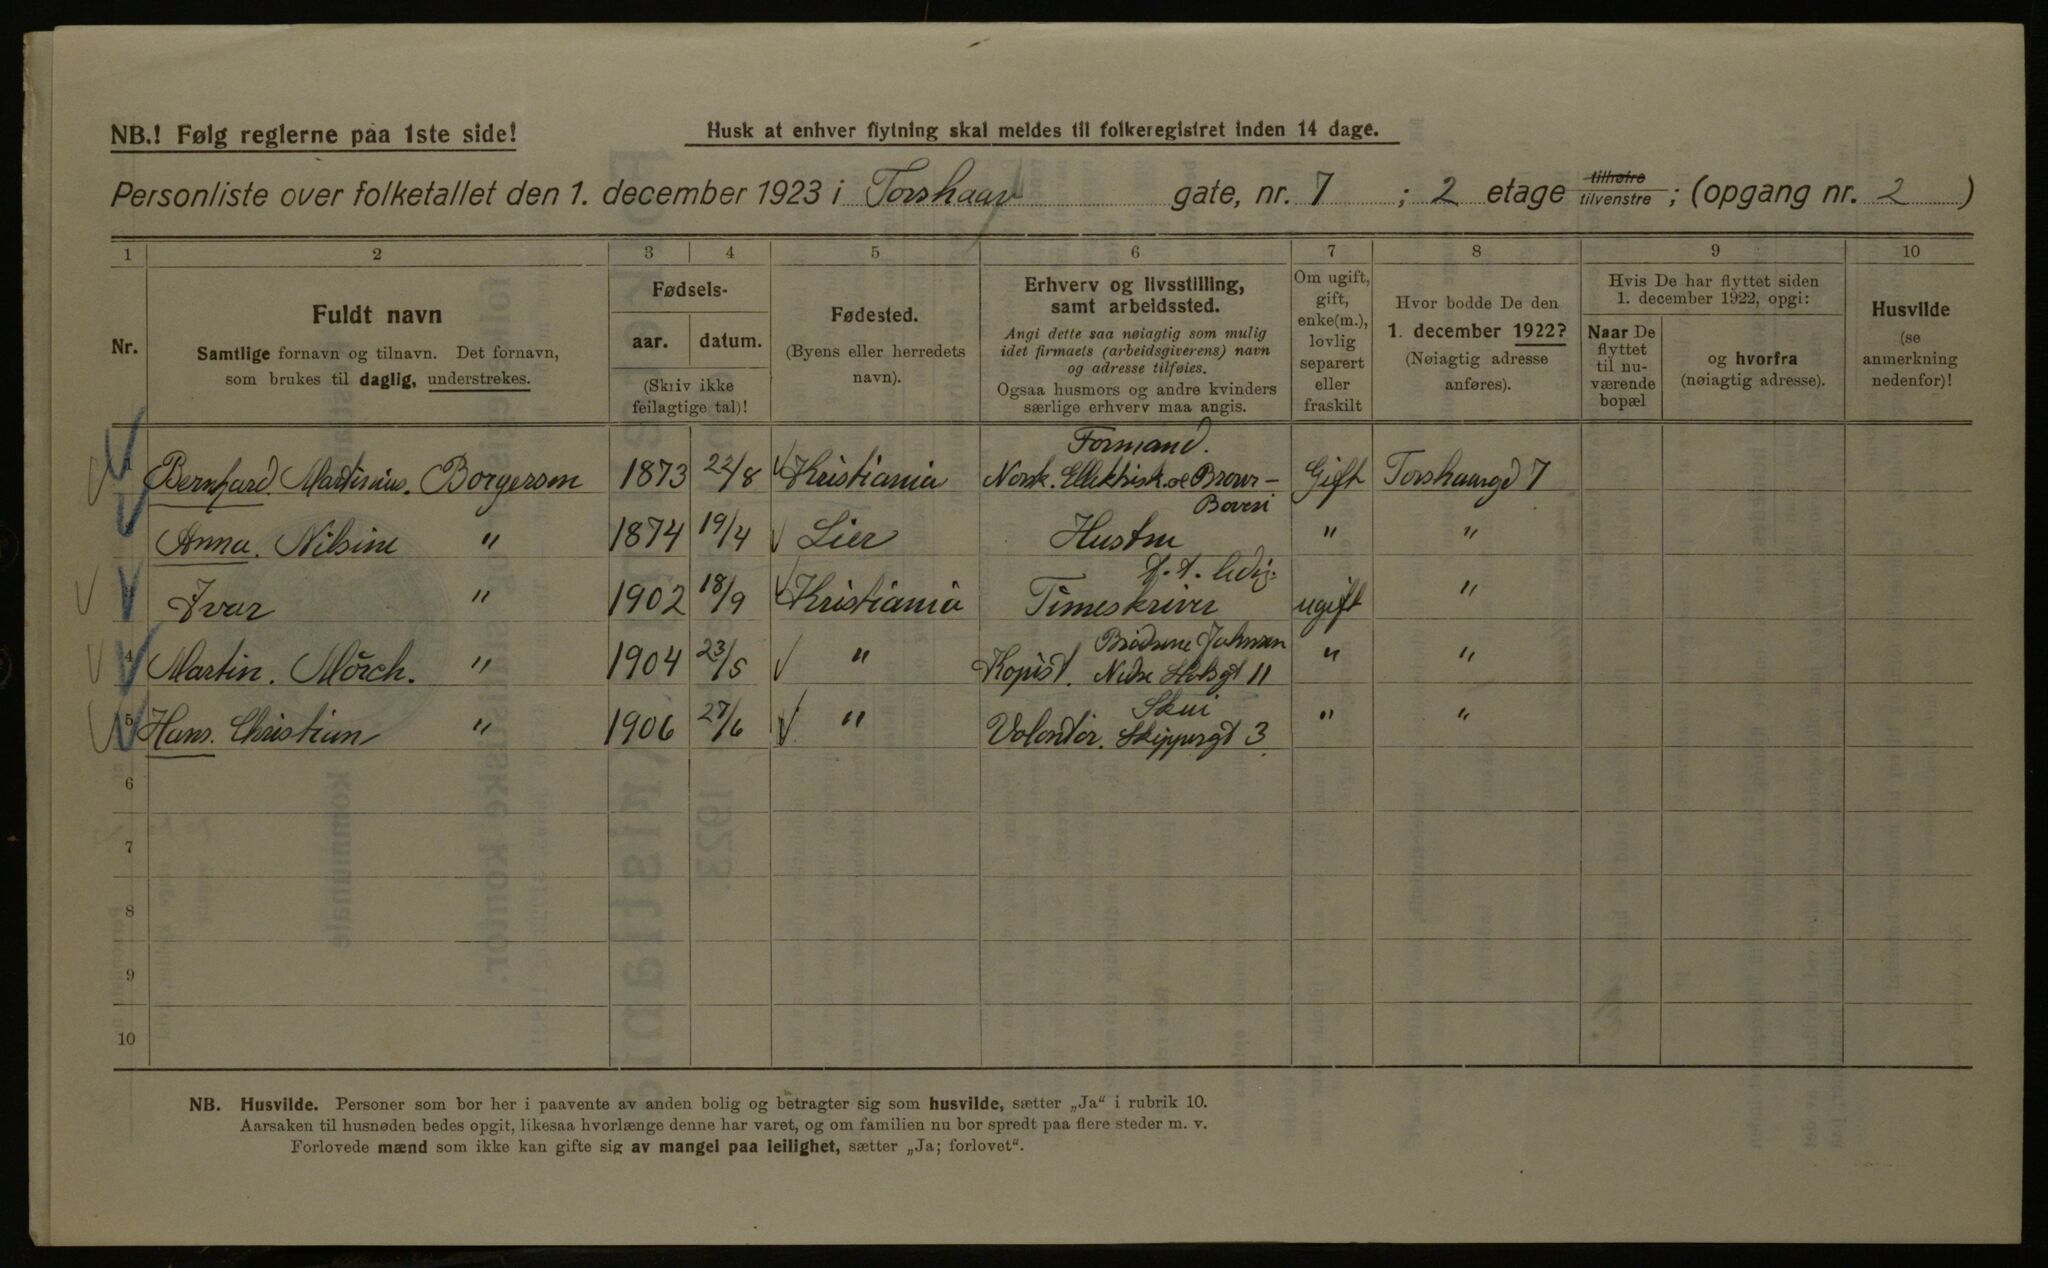 NB.! Følg reglerne paa 1ste side!
Husk at enhver flytning skal meldes til folkeregistret inden 14 dage.
Personliste over folketallet den 1. december 1923 i Torshaav gate, nr. 7 ; 2 etage tilhøire tilvenstre ; (opgang nr. 2 )
1 2 3 4 5 6 7 8 9 10
Nr.
Fuldt navn
Samtlige fornavn og tilnavn. Det fornavn,
som brukes til daglig, understrekes.
Fødsels-
aar. datum.
(Skriv ikke
feilagtige tal)!
Fødested.
(Byens eller herredets
navn).
Erhverv og livsstilling,
samt arbeidssted.
Angi dette saa nøiagtig som mulig
idet firmaets (arbeidsgiverens) navn
og adresse tilføies.
Ogsaa husmors og andre kvinders
særlige erhverv maa angis.
Om ugift,
gift,
enke(m.),
lovlig
separert
eller
fraskilt
Hvor bodde De den
1. december 1922?
(Nøiagtig adresse
anføres).
Hvis De har flyttet siden
1. december 1922, opgi:
Naar De
flyttet
til nu-
værende
bopæl
og hvorfra
(nøiagtig adresse).
Husvilde
(se
anmerkning
nedenfor)!
Formand.
Bernhard. Martinius. Borgersen 1873 22/8 Kristiania Norsk. Ellektrisk. & Brown - Gift Torshaavgd 7
Boveri
Anna. Nilsine " 1874 19/4 Lier Hustru " "
t. t. ledig.
Ivar " 1902 18/9 Kristiania Timeskriver ugift "
Brødrene Johnsen
4 Martin. Mörch. " 1904 23/5 " Kopist. Nedre Slotsgt 11 " "
Skui
5 Hans. Christian " 1906 27/6 " Volontör. Skippergt 3 " "
6
7
8
9
10
NB. Husvilde. Personer som bor her i paavente av anden bolig og betragter sig som husvilde, sætter „Ja“ i rubrik 10.
Aarsaken til husnøden bedes opgit, likesaa hvorlænge denne har varet, og om familien nu bor spredt paa flere steder m. v.
Forlovede mænd som ikke kan gifte sig av mangel paa leilighet, sætter „Ja; forlovet“.